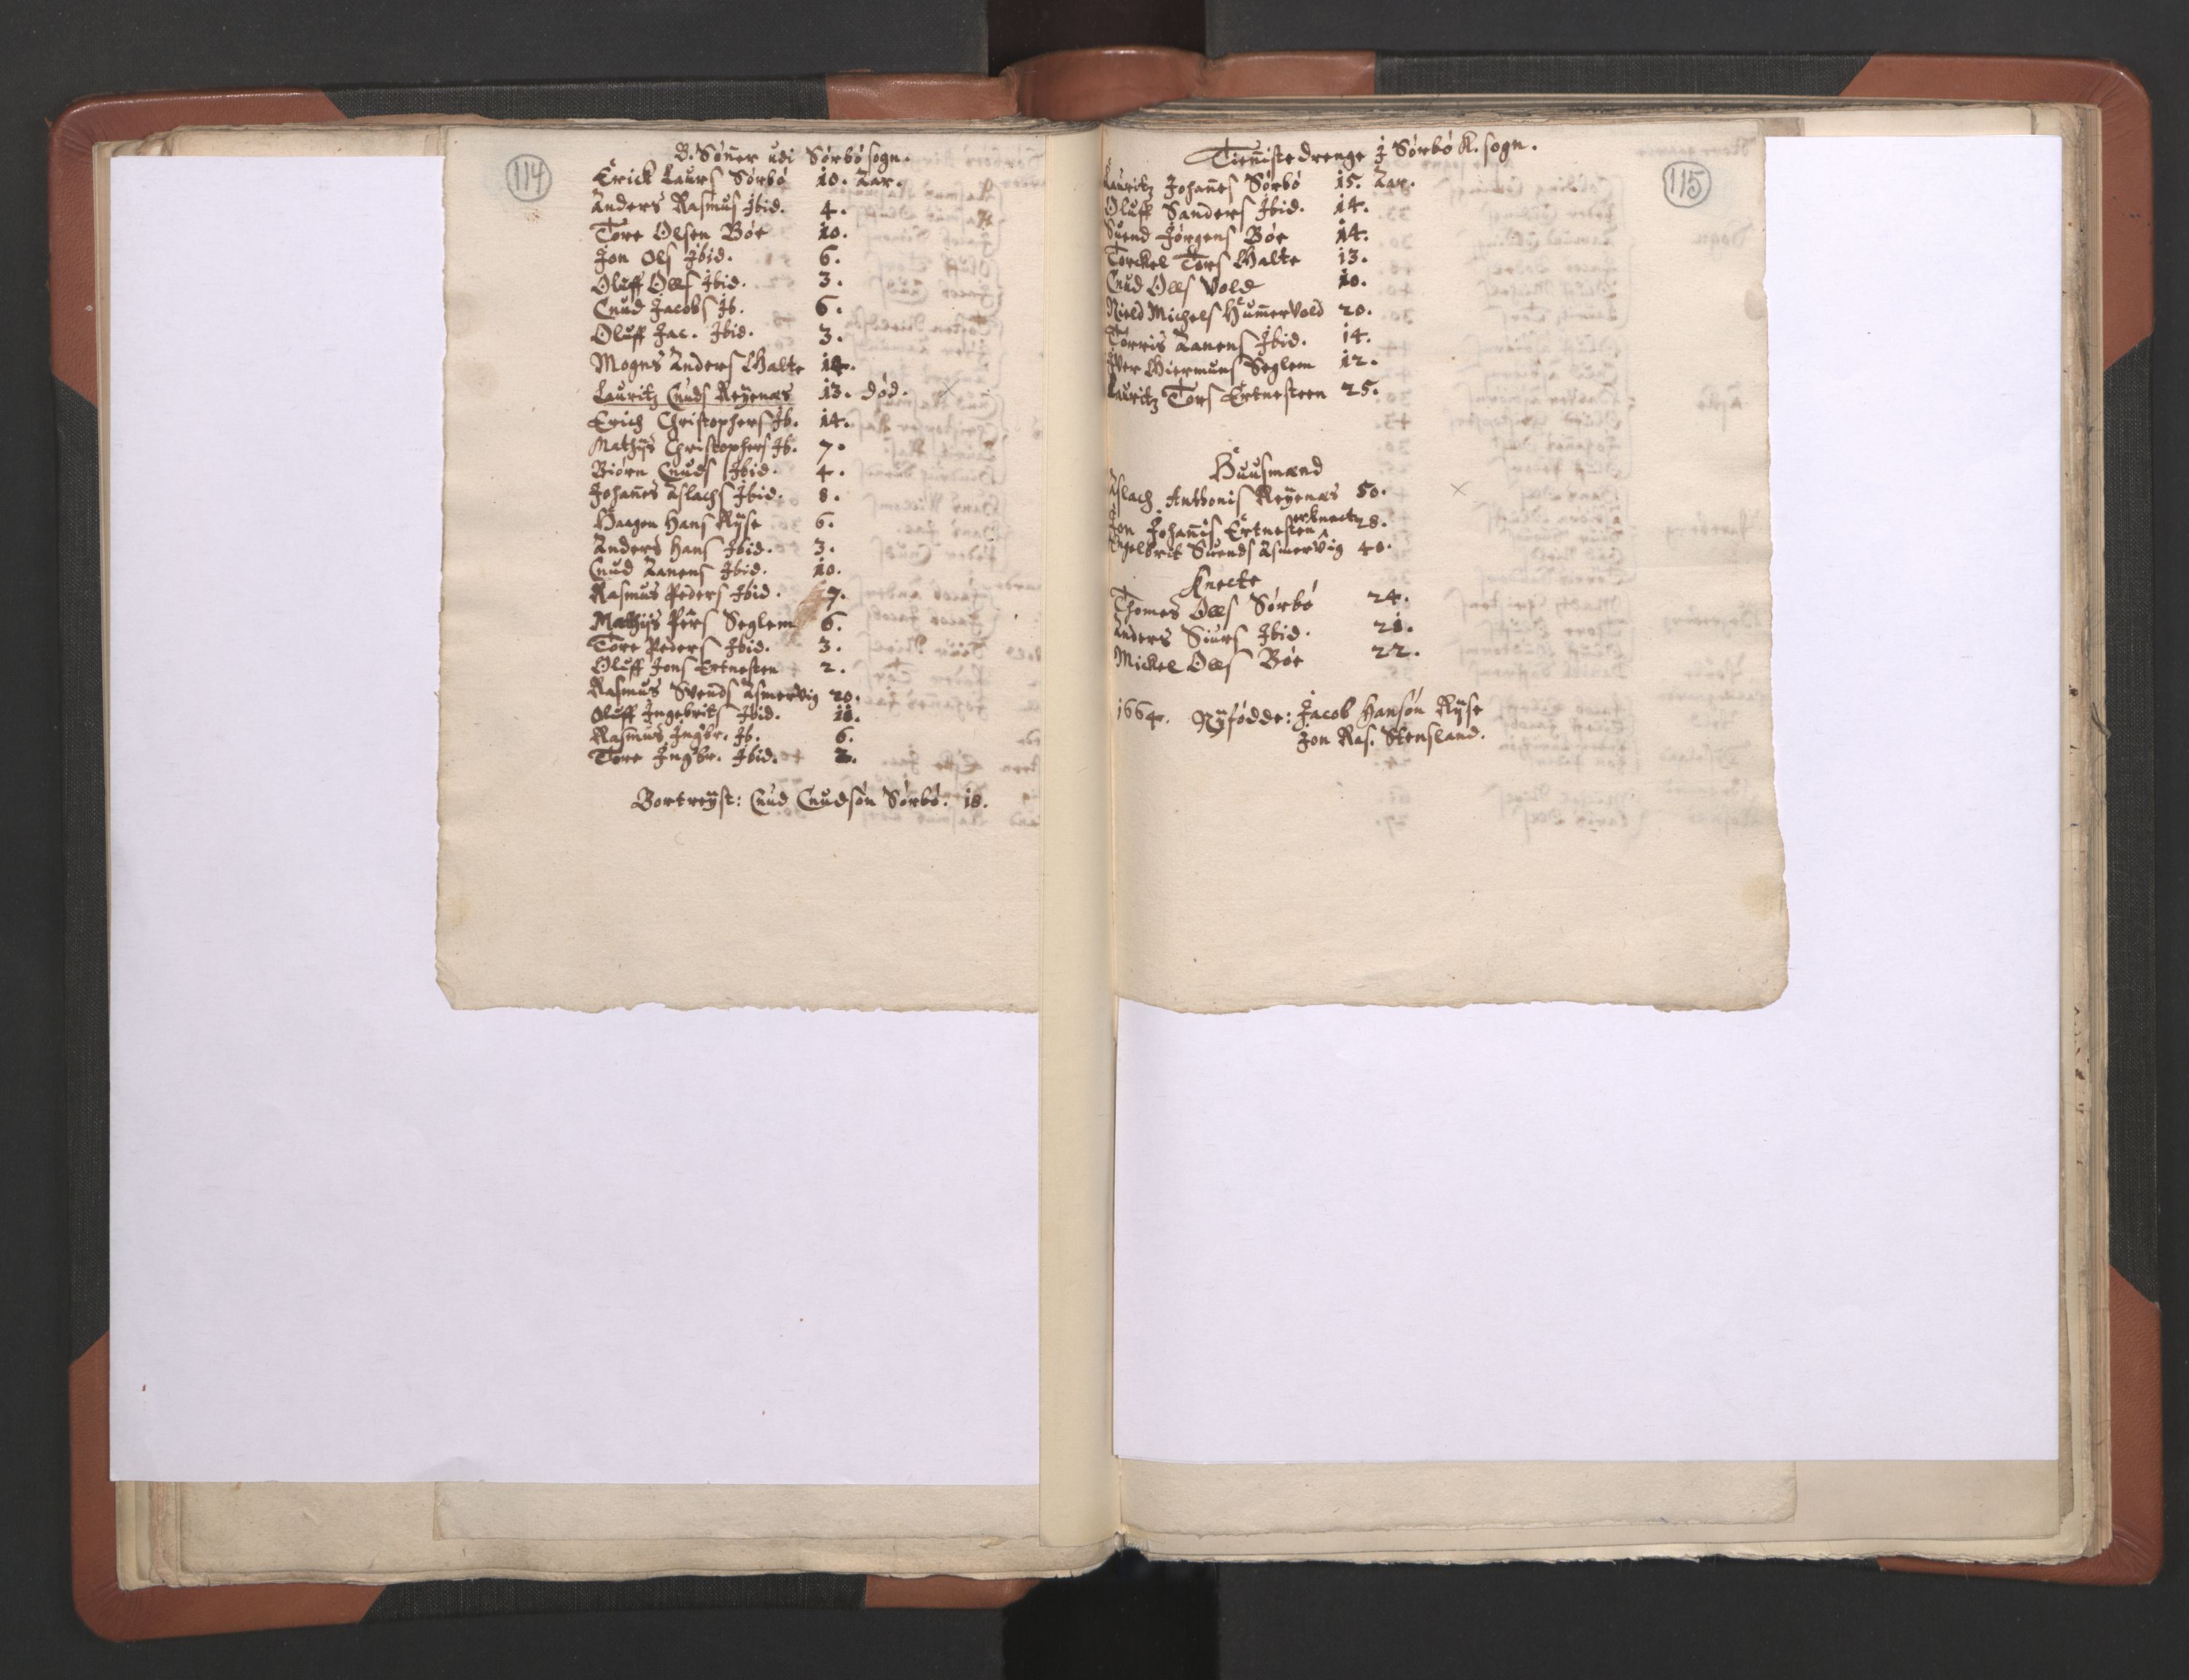 114
B. Sønner udi Sørbø sogn.
Erick Laurs Sørbø 10. Aar.
Anders Rasmus Ibid. 4.
Tore Olsen Bøe 10.
Jon Ols Ibid. 6.
Oluff Olls Ibid. 3.
Cnud Jacobs Ib. 6.
Oluff Jac. Ibid. 3.
Mogns Anders Halte
Lauritz Cnuds Reÿenæs 13. død.
Erich Christophers Ib. 14.
Mathÿs Christophers Ib. 7.
Biørn Cnuds Ibid. 4.
Johanes Aslachs Ibid. 8.
Haagen Hans Rÿse 6.
Anders Hans Ibid. 3.
Cnud Aanens Ibid. 10.
Rasmus Peders Ibid. 7.
Mathÿs Pers Seglem 6.
Tore Peders Ibid. 3.
Oluff Jons Ertnesten 2.
Rasmus Svends Asmervig 20.
Oluff Ingebrits Ibid.
Rasmus Ingbr. Ib. 6.
Tore Ingbr. Ibid.
Bortreÿst: Cnud Cnudsøn Sørbø. 18.
115
Tienistedrenge i Sørbø K. sogn.
Lauritz Johanes Sørbø 15. Aar.
Oluff Sanders Ibid. 14.
Suend Jørgens Bøe 14.
Torckel Tors Halte 13.
Cnud Olls Vold 10.
Nield Michels Hummervold 20.
Torris Aanens Ibid. 14.
Iver Hiermuns Seglem 12.
Lauritz Tors Ertnesteen 25.
Huusmænd
Aslach Anthonis Reÿenæs 50.
Jon Johanis Ertnesten 28.
Engelbrit Suends Asmervig 40.
Knecte
Thomes Olls Sørbø 24.
Anders Siurs Ibid. 21.
Mickel Olls Bøe 22.
1664. Nÿfødde: Jacob Hansøn Rÿse
Jon Ras. Stensland.